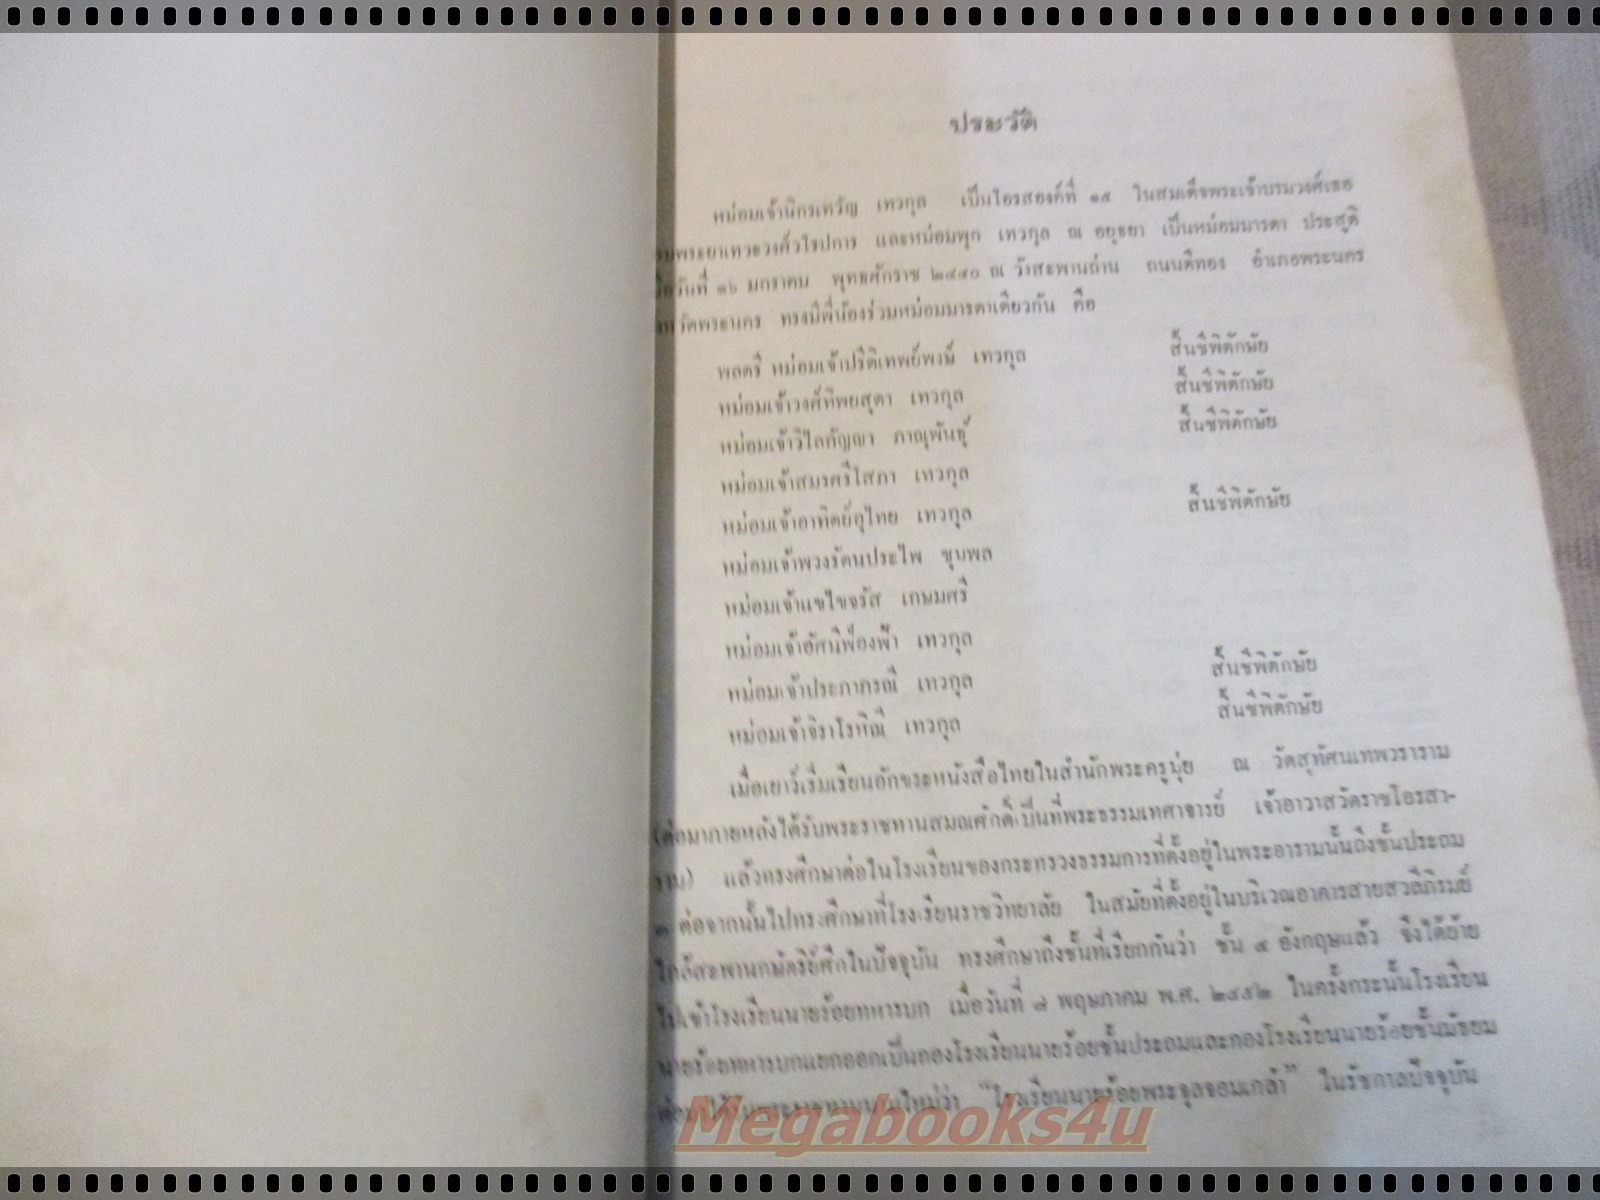 ประวัติ
หม่อมเจ้านิกรเทวัญ เทวกุล เป็นโอรสองค์ที่ ๑๕ ในสมเด็จพระเจ้าบรมวงศ์เธอ
กรมพระยาเทวะวงศ์วโรปการ และหม่อมพุก เทวกุล ณ อยุธยา เป็นหม่อมมารดา ประสูติ
วันที่ ๑๖ มกราคม พุทธศักราช ๒๔๔๐ ณ วังสะพานถ่าน ถนนตีทอง อำเภอพระนคร
จังหวัดพระนคร ทรงมีพี่น้องร่วมหม่อมมารดาเดียวกัน คือ
พลตรี หม่อมเจ้าปรีดิเทพย์พงษ์ เทวกุล สิ้นชีพิตักษัย
หม่อมเจ้าวงศ์ทิพยสุดา เทวกุล สิ้นชีพิตักษัย
หม่อมเจ้าวิไลกัญญา ภาณุพันธุ์ สิ้นชีพิตักษัย
หม่อมเจ้าสมรศรีโสภา เทวกุล
หม่อมเจ้าอาทิตย์อุไทย เทวกุล สิ้นชีพิตักษัย
หม่อมเจ้าพวงรัตนประไพ ชุบพล
หม่อมเจ้าแขไขจรัส เกษมศรี
หม่อมเจ้าอัศนีฟ่องฟ้า เทวกุล
หม่อมเจ้าประภาภรณี เทวกุล สิ้นชีพิตักษัย
หม่อมเจ้าจิราโรหิณี เทวกุล สิ้นชีพิตักษัย
เมื่อเยาว์เริ่มเรียนอักขระหนังสือไทยในสำนักพระครูปุ่ย ณ วัดสุทัศนเทพวราราม
(ต่อมาภายหลังได้รับพระราชทานสมณศักดิ์เป็นที่พระธรรมเทศาจารย์ เจ้าอาวาสวัดราชโอรสา-
ราม) แล้วทรงศึกษาต่อในโรงเรียนของกระทรวงธรรมการที่ตั้งอยู่ในพระอารามนั้นถึงชั้นประถม
ต่อจากนั้นไปทรงศึกษาที่โรงเรียนราชวิทยาลัย ในสมัยที่ตั้งอยู่ในบริเวณอาคารสายสวลีภิรมย์
ใกล้สะพานกษัตริย์ศึกในปัจจุบัน ทรงศึกษาถึงชั้นที่เรียกกันว่า ชั้น ๔ อังกฤษแล้ว จึงได้ย้าย
ไปเข้าโรงเรียนนายร้อยทหารบก เมื่อวันที่ ๘ พฤษภาคม พ.ศ. ๒๔๕๒ ในครั้งกระนั้นโรงเรียน
นายร้อยทหารบกแยกออกเป็นกองโรงเรียนนายร้อยชั้นประถมและกองโรงเรียนนายร้อยชั้นมัธยม
"โรงเรียนนายร้อยพระจุลจอมเกล้า" ในรัชกาลปัจจุบัน
Megabooks4u